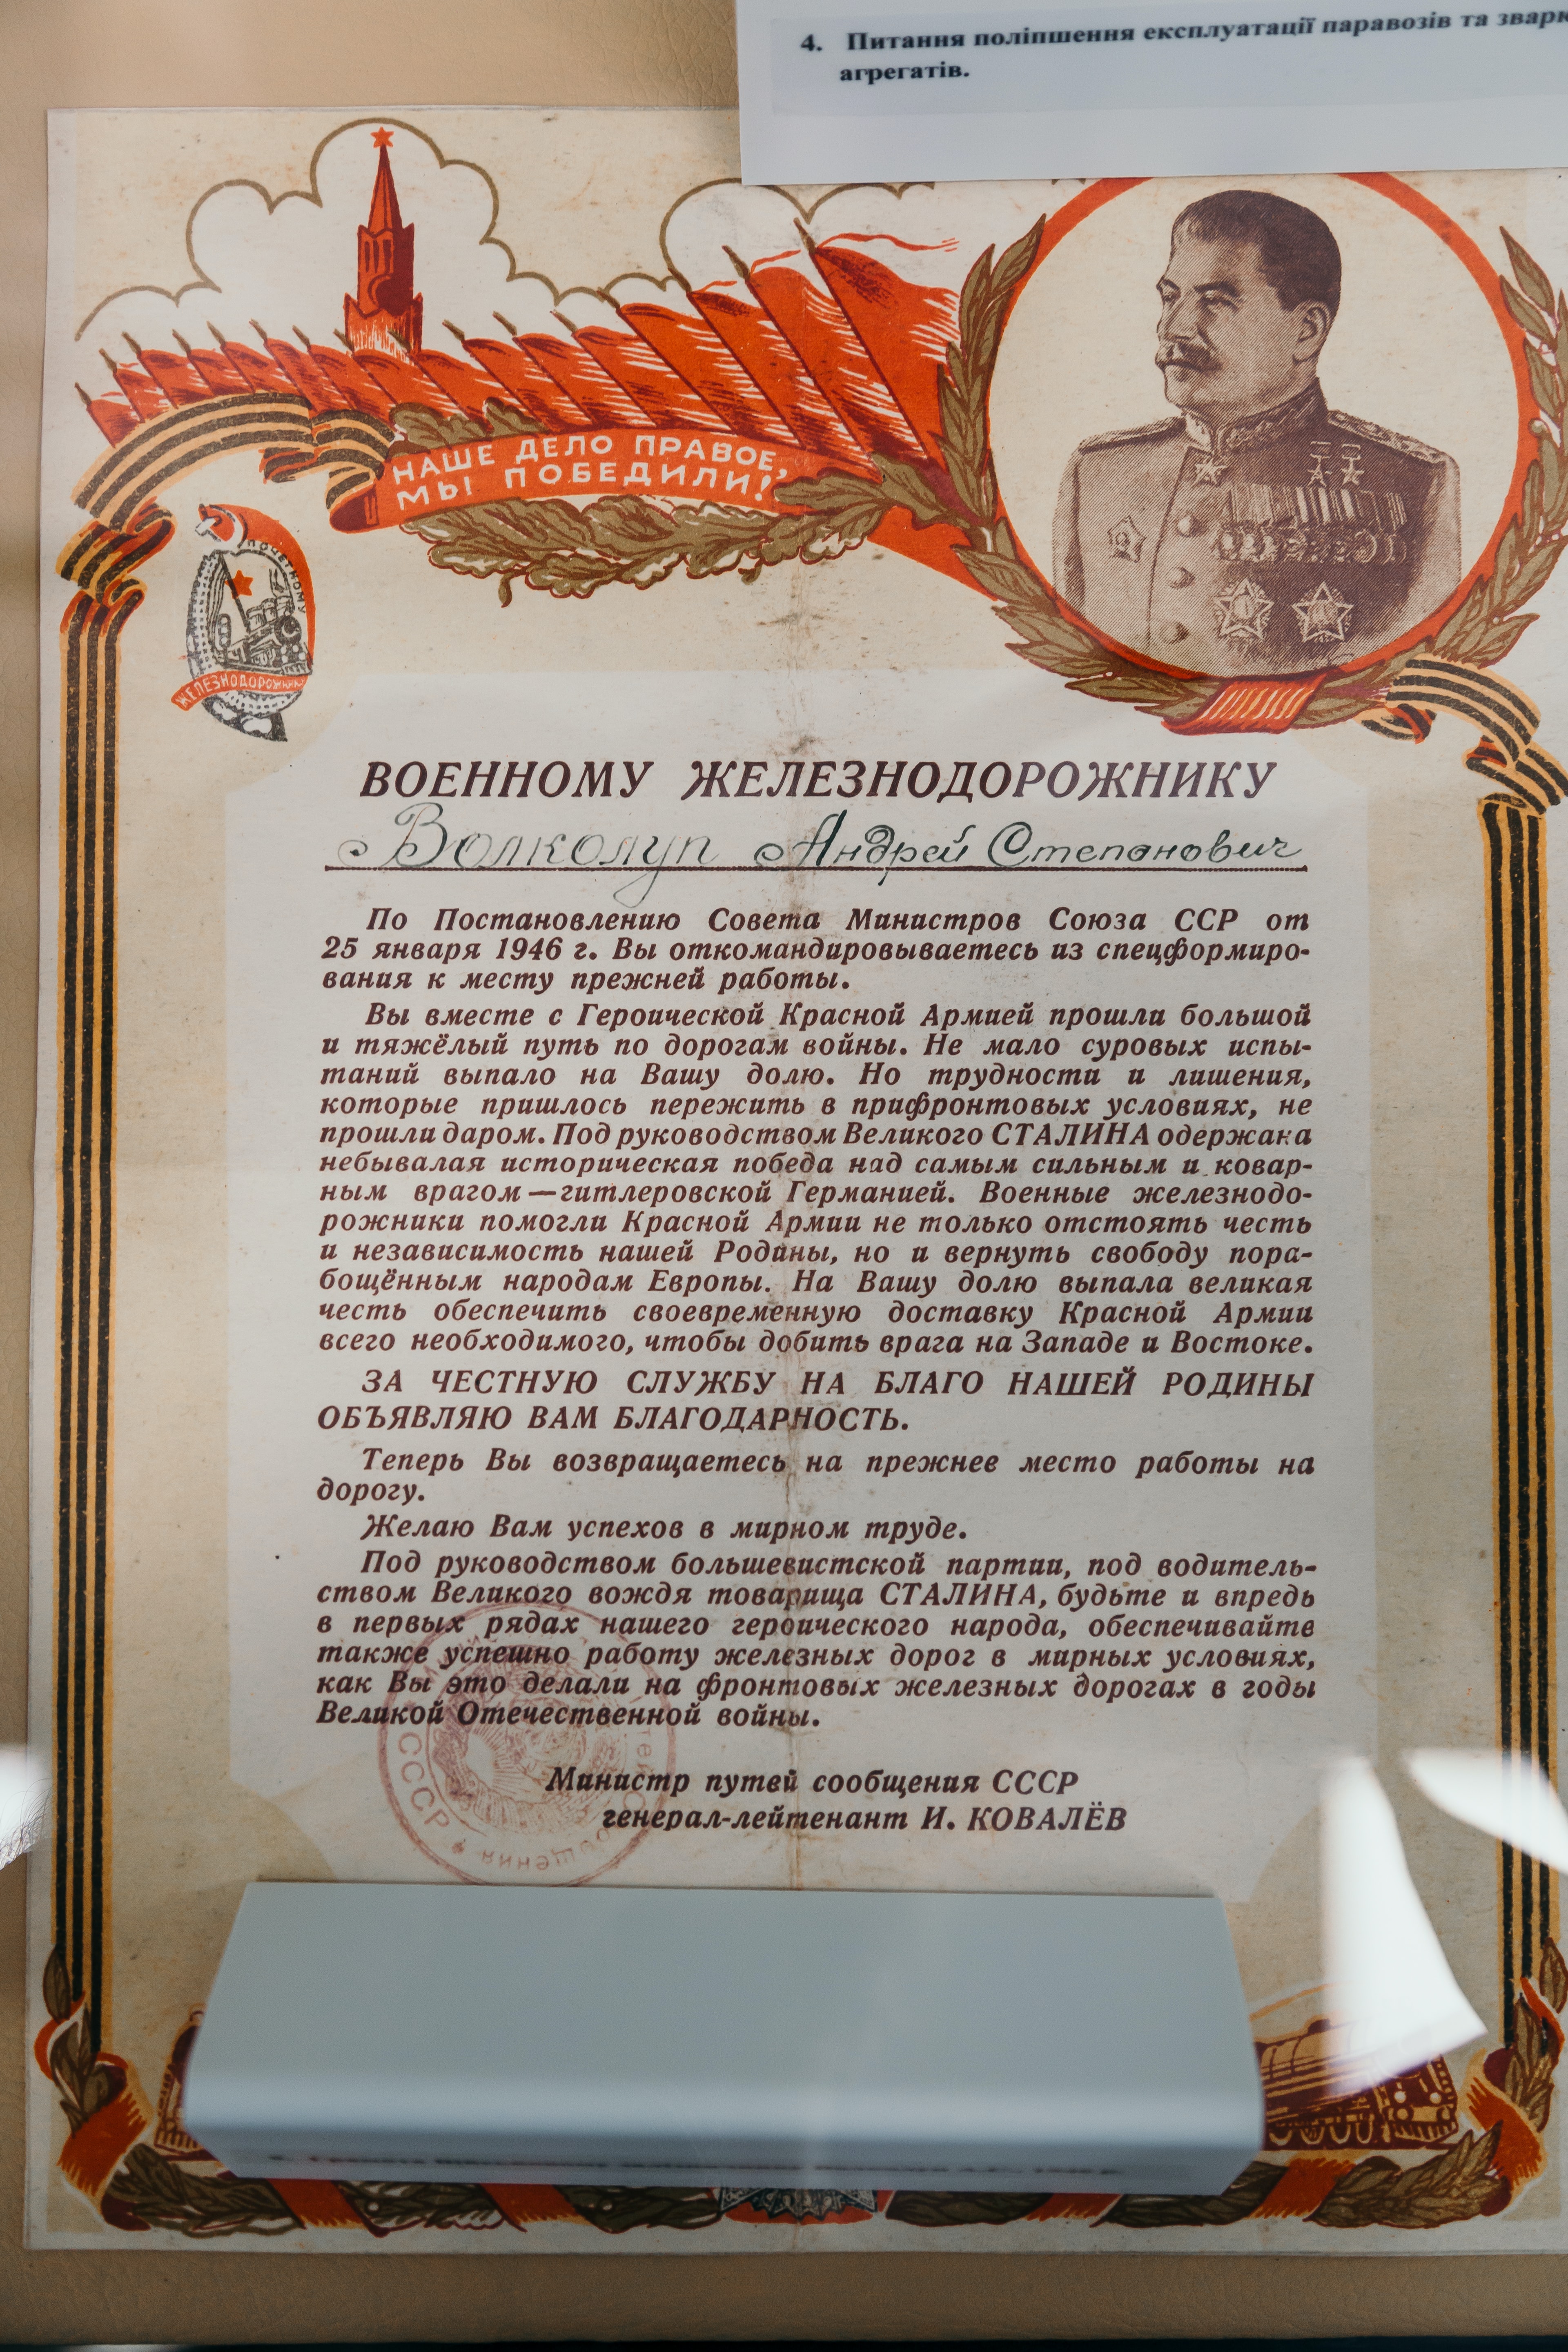 4. Питання поліпшення експлуатації паравозів та
агрегатів.
НАШЕ ДЕЛО ПРАВОЕ,
МЫ ПОБЕДИЛИ!
ПОЧЕТНОМУ
ЖЕЛЕЗНОДОРОЖНИКУ
ВОЕННОМУ ЖЕЛЕЗНОДОРОЖНИКУ
Волколуп Андрей Степанович
По Постановлению Совета Министров Союза ССР от
25 января 1946 г. Вы откомандировываетесь из спецформиро-
вания к месту прежней работы.
Вы вместе с Героической Красной Армией прошли большой
и тяжёлый путь по дорогам войны. Не мало суровых испы-
таний выпало на Вашу долю. Но трудности и лишения,
которые пришлось пережить в прифронтовых условиях, не
прошли даром. Под руководством Великого СТАЛИНА одержана
небывалая историческая победа над самым сильным и ковар-
ным врагом—гитлеровской Германией. Военные железнодо-
рожники помогли Красной Армии не только отстоять честь
и независимость нашей Родины, но и вернуть свободу пора-
бощённым народам Европы. На Вашу долю выпала великая
честь обеспечить своевременную доставку Красной Армии
всего необходимого, чтобы добить врага на Западе и Востоке.
ЗА ЧЕСТНУЮ СЛУЖБУ НА БЛАГО НАШЕЙ РОДИНЫ
ОБЪЯВЛЯЮ ВАМ БЛАГОДАРНОСТЬ.
Теперь Вы возвращаетесь на прежнее место работы на
дорогу.
Желаю Вам успехов в мирном труде.
Под руководством большевистской партии, под водитель-
ством Великого вождя товарища СТАЛИНА, будьте и впредь
в первых рядах нашего героического народа, обеспечивайте
также успешно работу железных дорог в мирных условиях,
как Вы это делали на фронтовых железных дорогах в годы
Великой Отечественной войны.
Министр путей сообщения СССР
генерал-лейтенант И. КОВАЛЁВ
СССР